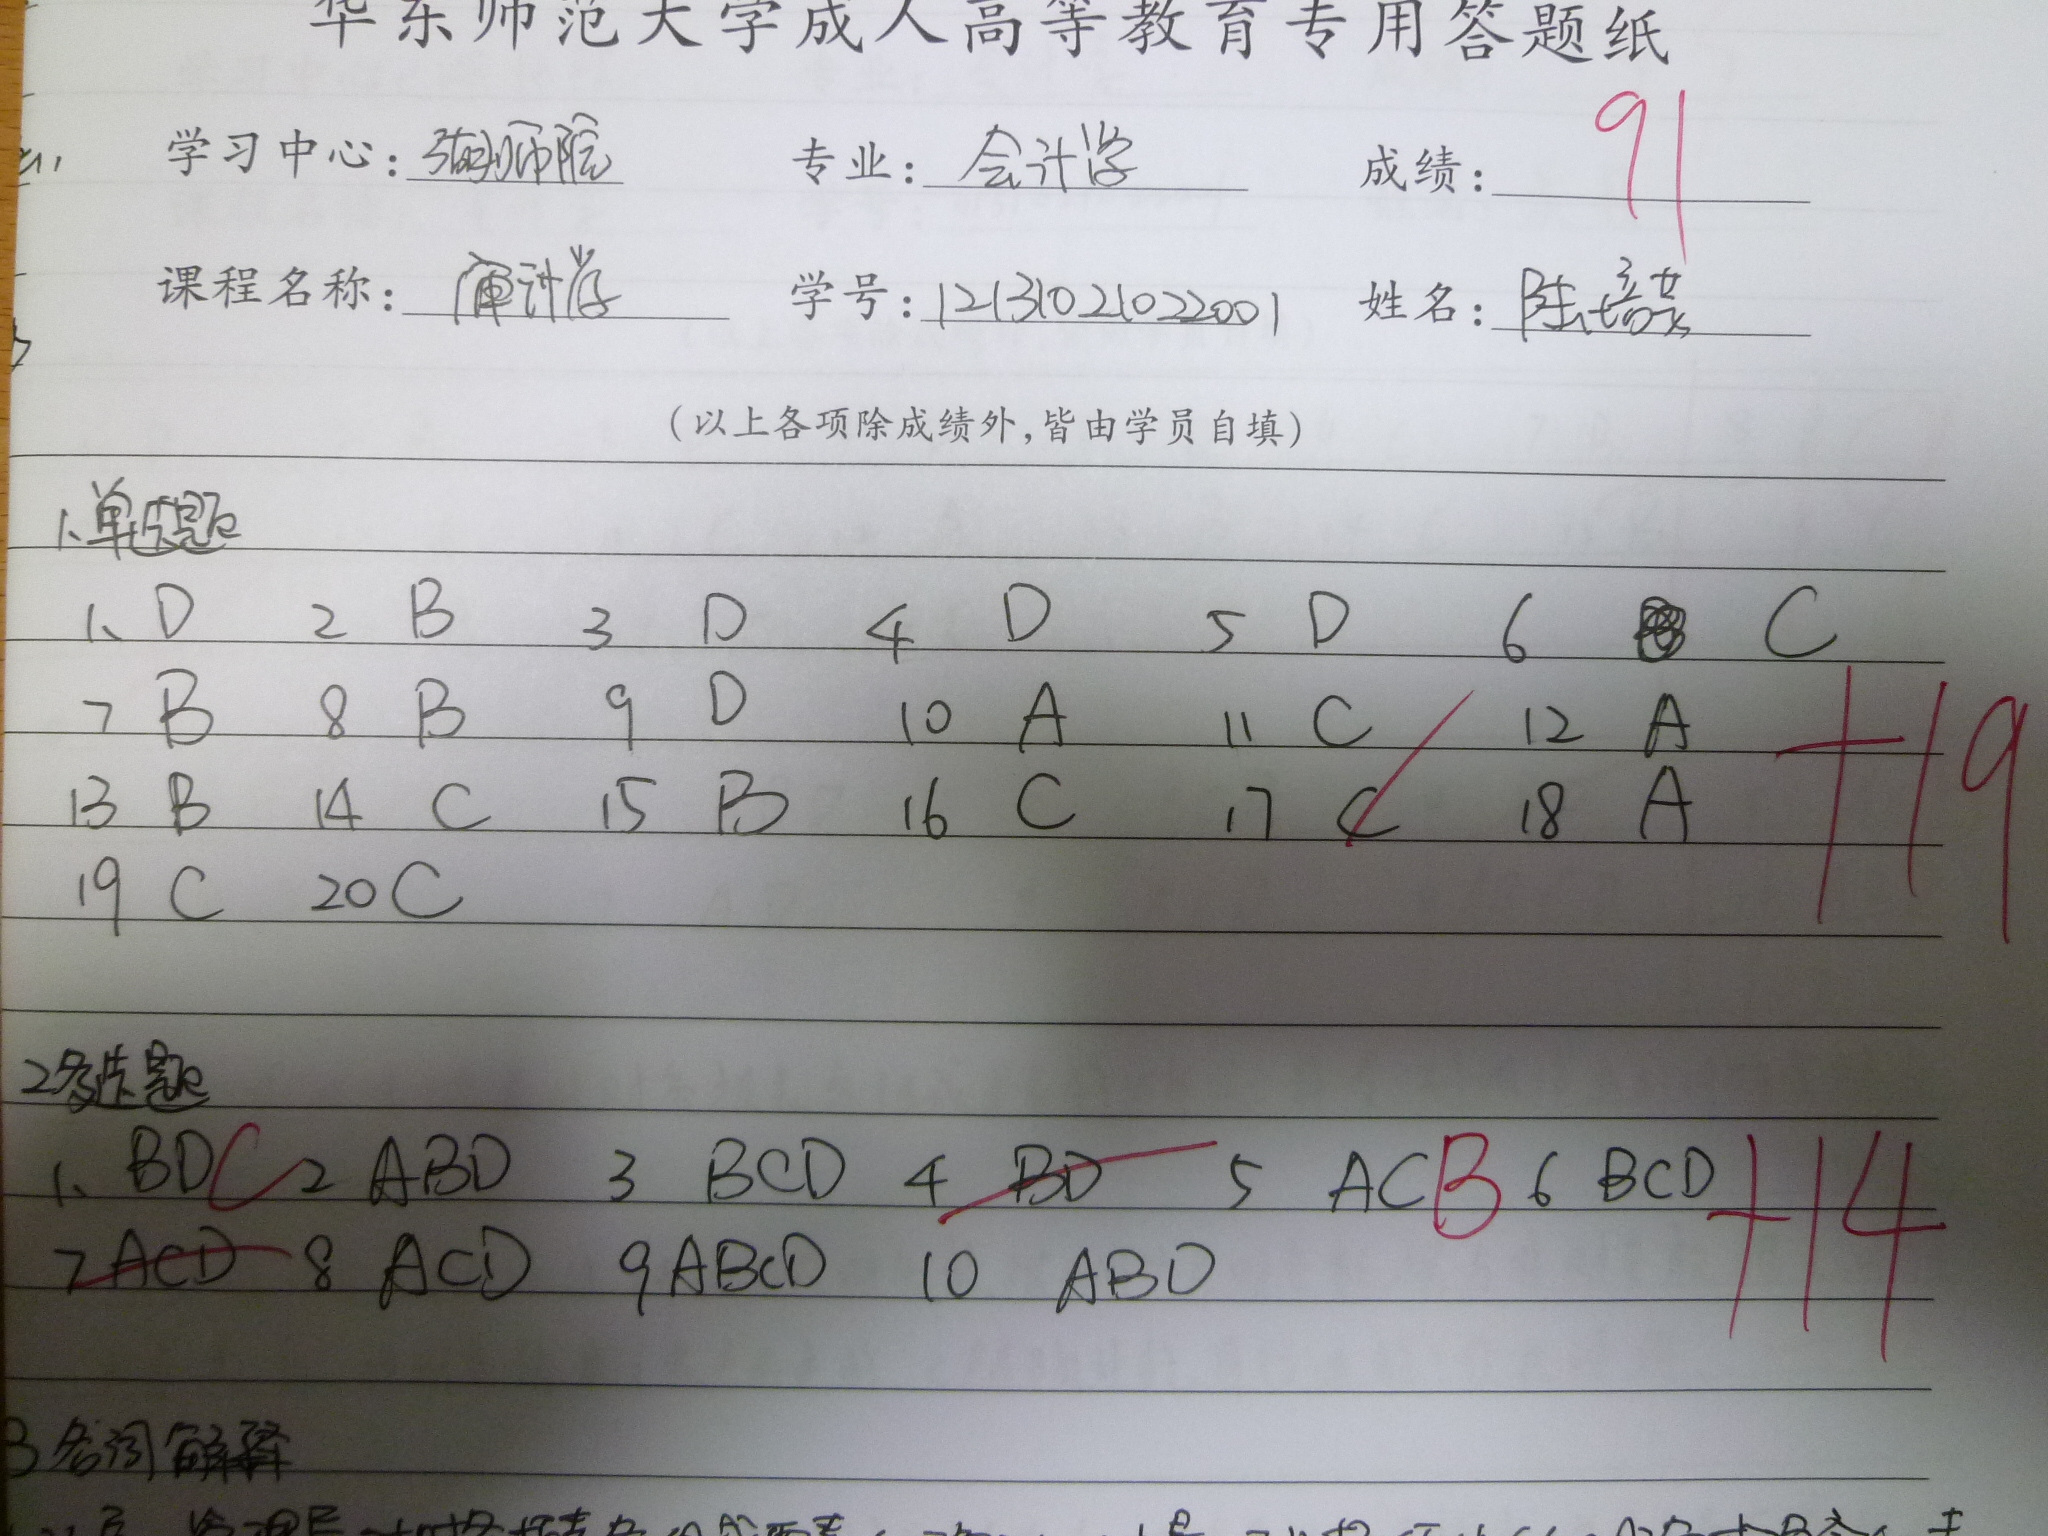 华东师范大学成人高等教育专用答题纸
学习中心: 师院 专业: 会计学 成绩: 91
课程名称: 审计学 学号: 12131021022001 姓名: 陈培
(以上各项除成绩外,皆由学员自填)
1、单选题
1、D 2 B 3 D 4 D 5 D 6 C
7 B 8 B 9 D 10 A 11 C 12 A +19
13 B 14 C 15 B 16 C 17 C 18 A
19 C 20 C
2多选题
1、BDC 2 ABD 3 BCD 4 BD 5 ACB 6 BCD +14
7 ACD 8 ACD 9 ABCD 10 ABD
3名词解释